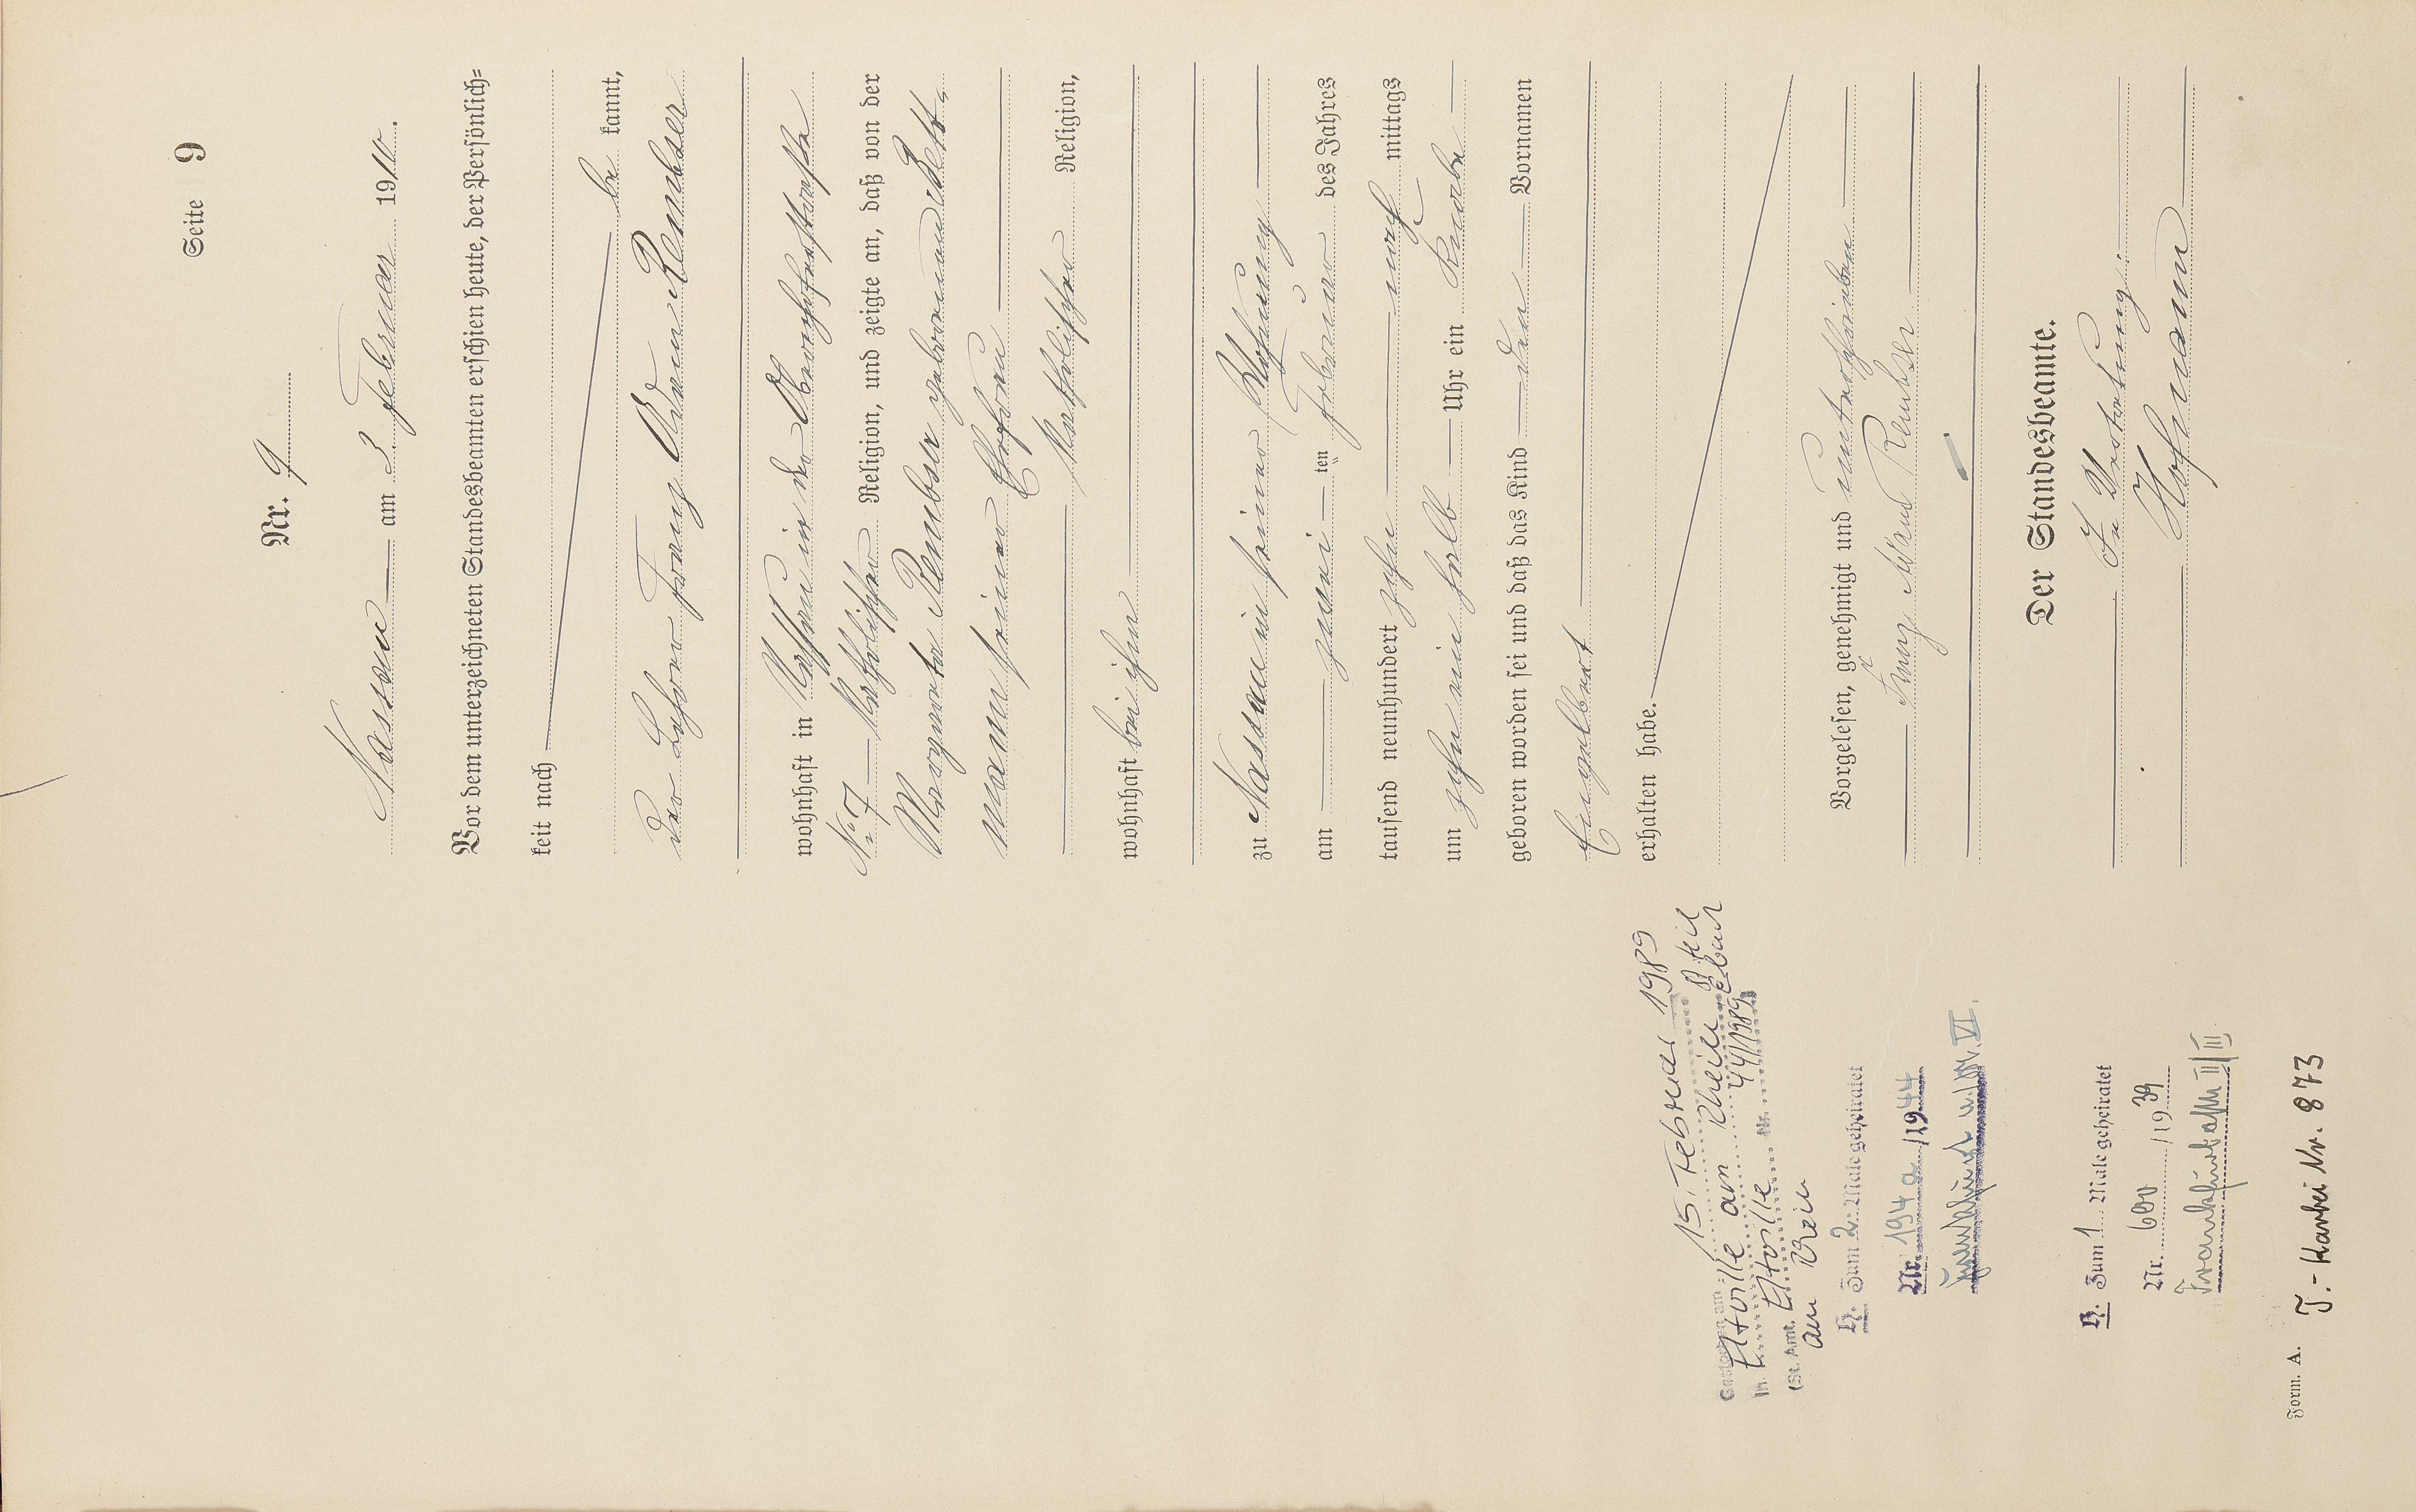 Seite 9
Nr. 9
Nassau am 3. Februar 1910.
Vor dem unterzeichneten Standesbeamten erschien heute, der Persönlich=
keit nach
be kannt,
der Lehrer Franz Adam Rembser
wohnhaft in Nassau in der Obernhoferstraße
No 7 katholischer Religion, und zeigte an, daß von der
Margareta Rembser geborenen Bett-
mann seiner Ehefrau
katholischer Religion,
wohnhaft bei ihm
zu Nassau in seiner Wohnung
am zwei ten Februar des Jahres
tausend neunhundert zehn nach mittags
um zehn ein halb Uhr ein Knabe
geboren worden sei und daß das Kind den Vornamen
Engelbert
erhalten habe.
Vorgelesen, genehmigt und unterschrieben
Franz Adam Rembser
Der Standesbeamte.
In Vertretung:
Hofmann
Gestorben am 15. Februar 1989
in Eltville am Rhein
(St. Amt. Eltville Nr. 44/1989
am Rhein
H. Zum 2. Male geheiratet
Nr. 194a /1944
VI.
H. Zum 1 Male geheiratet
Nr. 600 /1939
Frankfurt a/M II/III
Form. A.
T.-Kartei Nr. 873